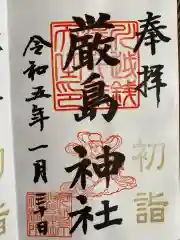 奉拝
初詣
厳島神社
令和五年一月三日